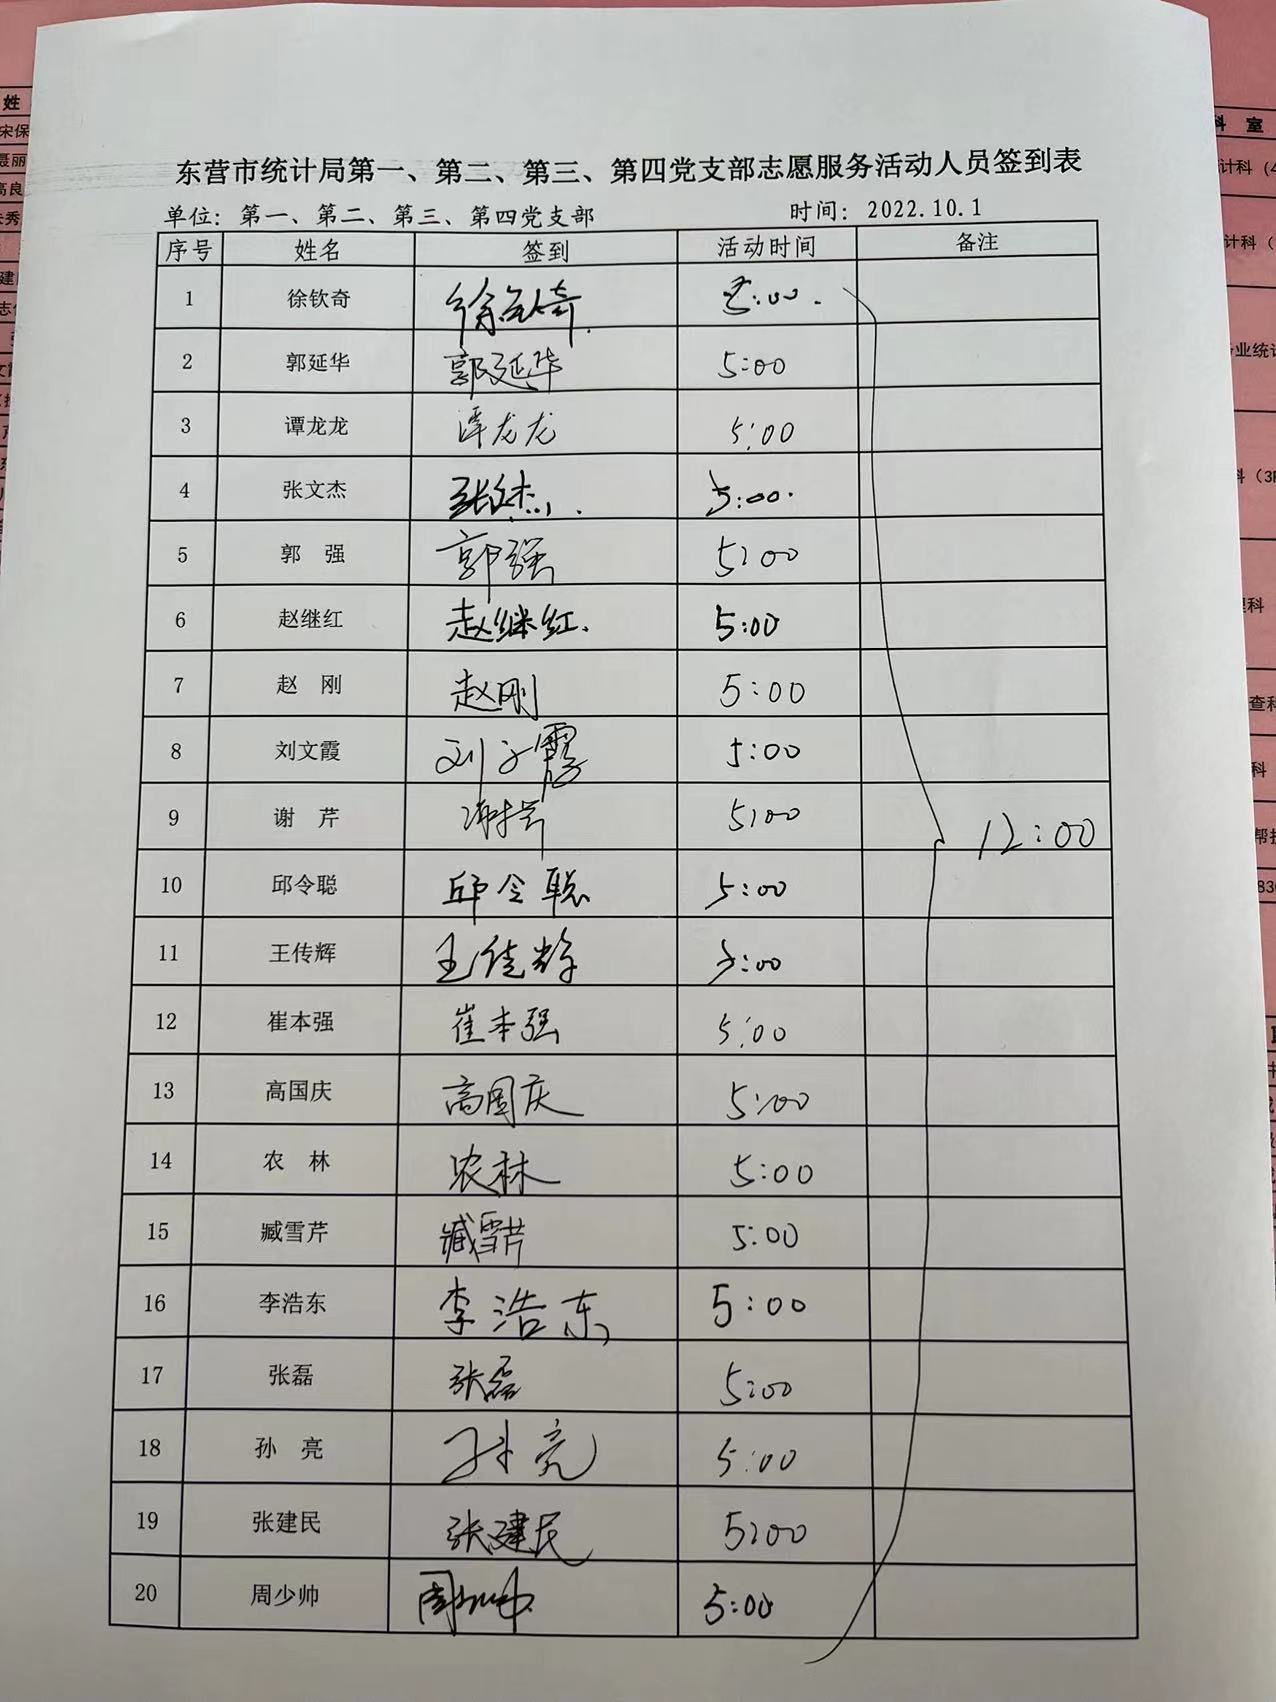 东营市统计局第一、第二、第三、第四党支部志愿服务活动人员签到表
单位：第一、第二、第三、第四党支部 时间：2022.10.1
序号 姓名 签到 活动时间 备注
1 徐钦奇 徐钦奇 5:00.
2 郭延华 郭延华 5:00
3 谭龙龙 谭龙龙 5:00
4 张文杰 张文杰 5:00.
5 郭 强 郭强 5:00
6 赵继红 赵继红. 5:00
7 赵 刚 赵刚 5:00
8 刘文霞 刘文霞 5:00
9 谢 芹 谢芹 5:00
12:00
10 邱令聪 邱令聪 5:00
11 王传辉 王传辉 5:00
12 崔本强 崔本强 5:00
13 高国庆 高国庆 5:00
14 农 林 农林 5:00
15 臧雪芹 臧雪芹 5:00
16 李浩东 李浩东 5:00
17 张磊 张磊 5:00
18 孙 亮 孙亮 5:00
19 张建民 张建民 5:00
20 周少帅 周少帅 5:00
姓
宋保
聂丽
高良
科 室
计科（4
计科（
业统计
科（3F
理科
查科
科
帮扶